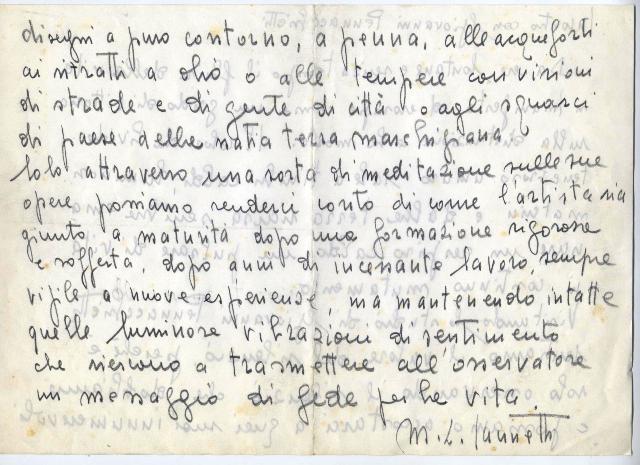 disegni a puro contorno, a penna, alle acqueforti
ai ritratti a olio o alle tempere con visioni
di strade e di gente di città o agli squarci
di paese della natia terra marchigiana.
Solo attraverso una sorta di meditazione sulle sue
opere possiamo renderci conto di come l'artista sia
giunto a maturità dopo una formazione rigorosa
e sofferta, dopo anni di incessante lavoro, sempre
vigile a nuove esperienze, ma mantenendo intatte
quelle luminose vibrazioni di sentimento
che riescono a trasmettere all'osservatore
un messaggio di fede nella vita.
(M. L.